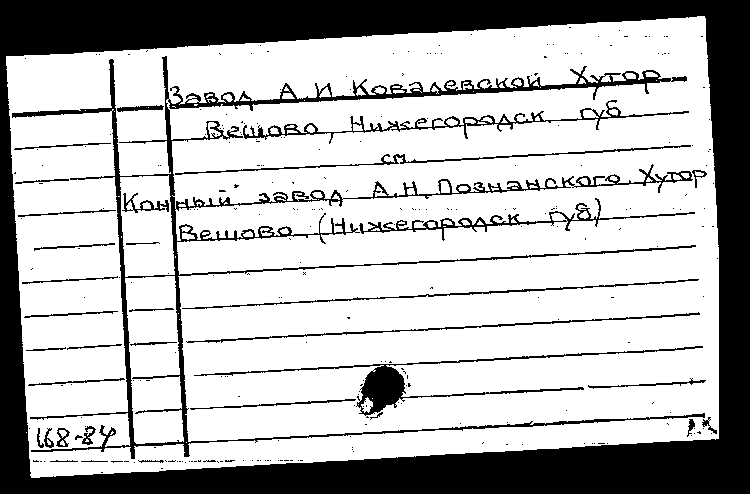 Завод А И Ковалевской Хутор
Вешово, Нижегородск. губ
см.
Конный завод А.Н. Познанского Хутор
Вешово (Нижегородск. губ)
168-84